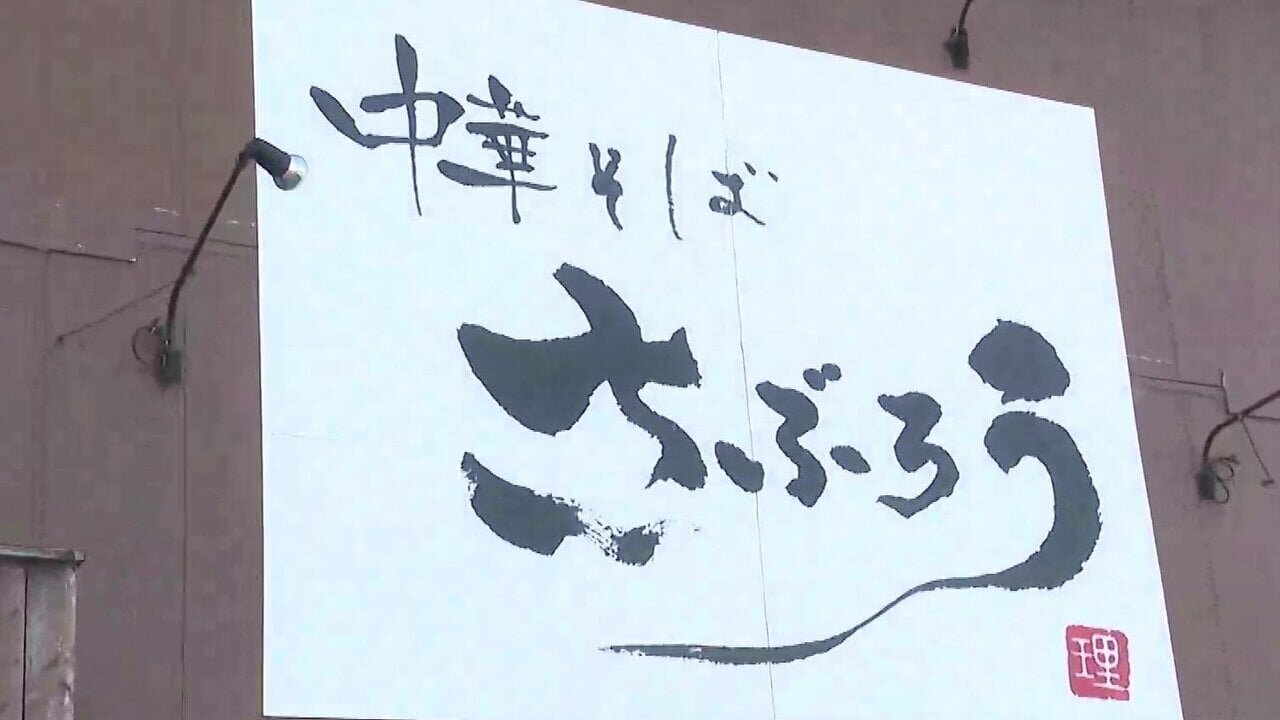 中華そば
さぶろう
理